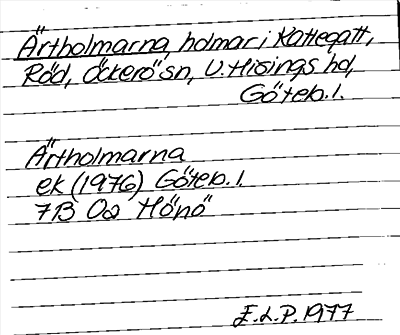 Ärtholmarna, holmar i Kattegatt,
Röd, Öckerö sn, V. Hisings hd,
Göteb. l.
Ärtholmarna
ek (1976) Göteb. l.
7B 0a Hönö
E.L.P. 1977